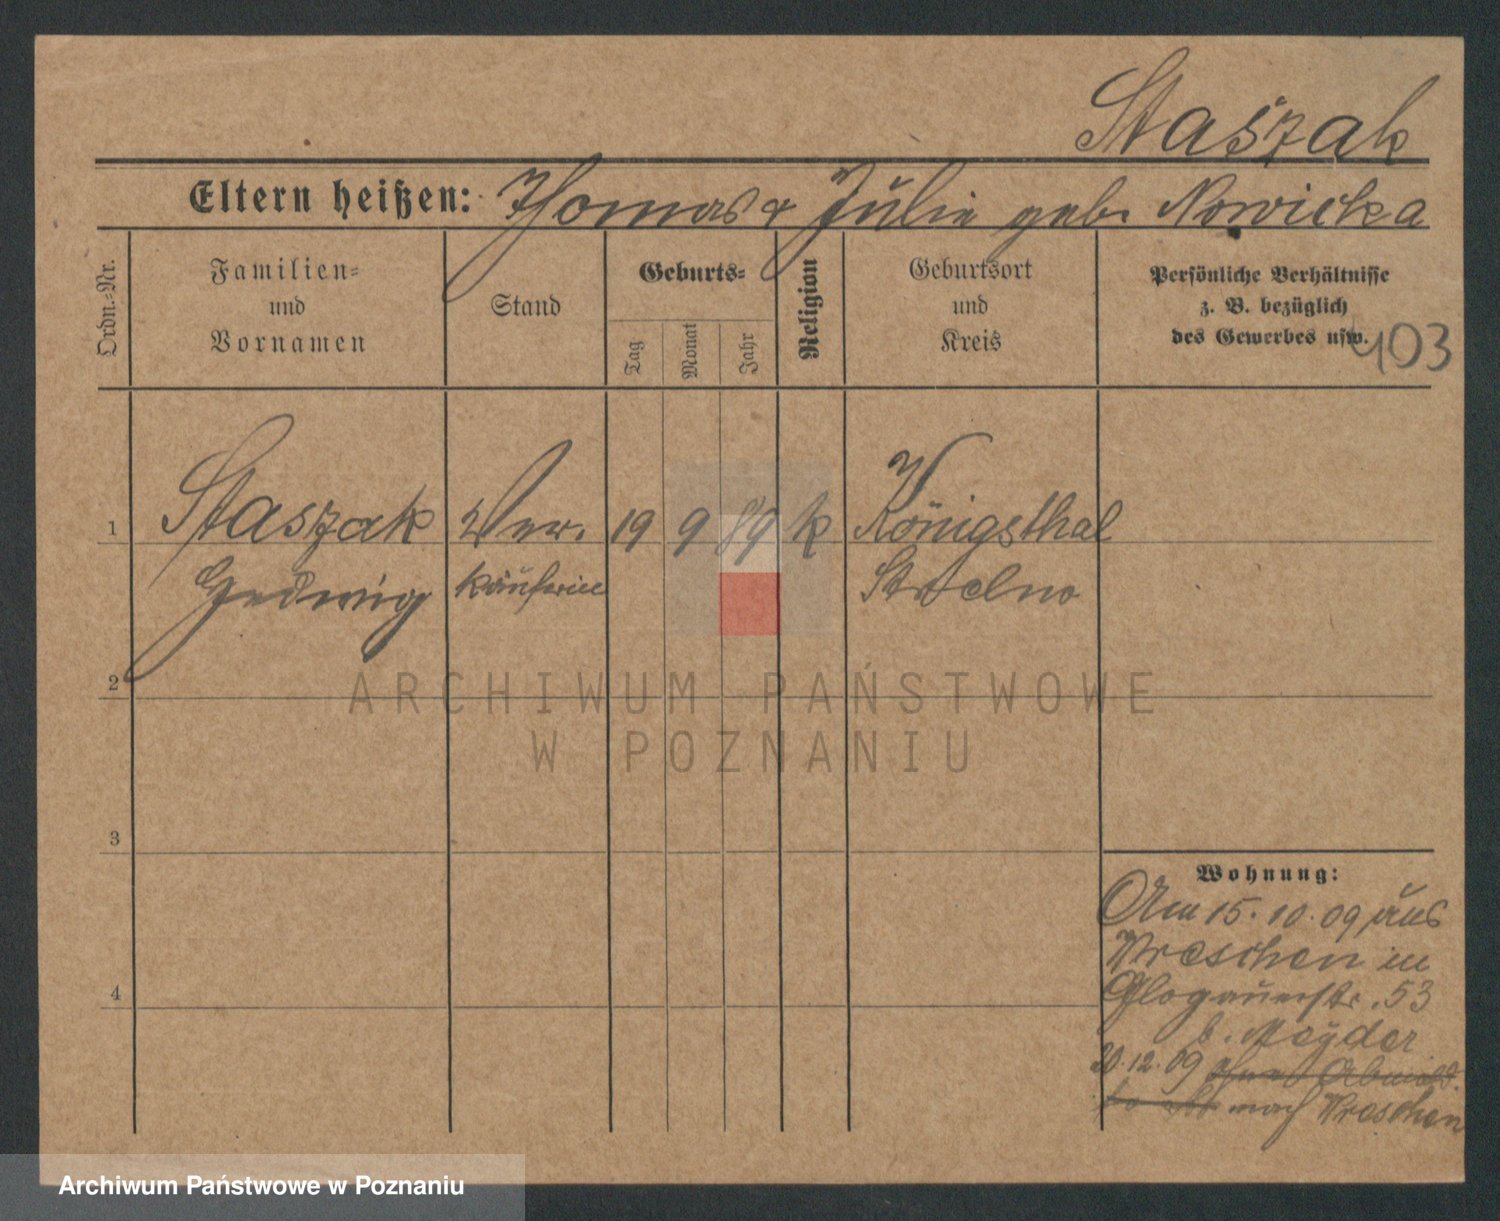 Staszak
Eltern heißen: Thomas & Julie geb. Nowicka
Ordn.-Nr.
Familien-
und
Vornamen
Stand
Geburts-
Tag
Monat
Jahr
Religion
Geburtsort
und
Kreis
Persönliche Verhältnisse
z. B. bezüglich
des Gewerbes usw.
403
1
Staszak Ver. 19 9 89 k Königsthal
Hedwig käuferin Strelno
2
ARCHIWUM PAŃSTWOWE
W POZNANIU
3
4
Wohnung:
Am 15.10.09 aus
Wreschen in
Glogauerstr. 53
b. Meyder
20.12.09
nach Wreschen
Archiwum Państwowe w Poznaniu